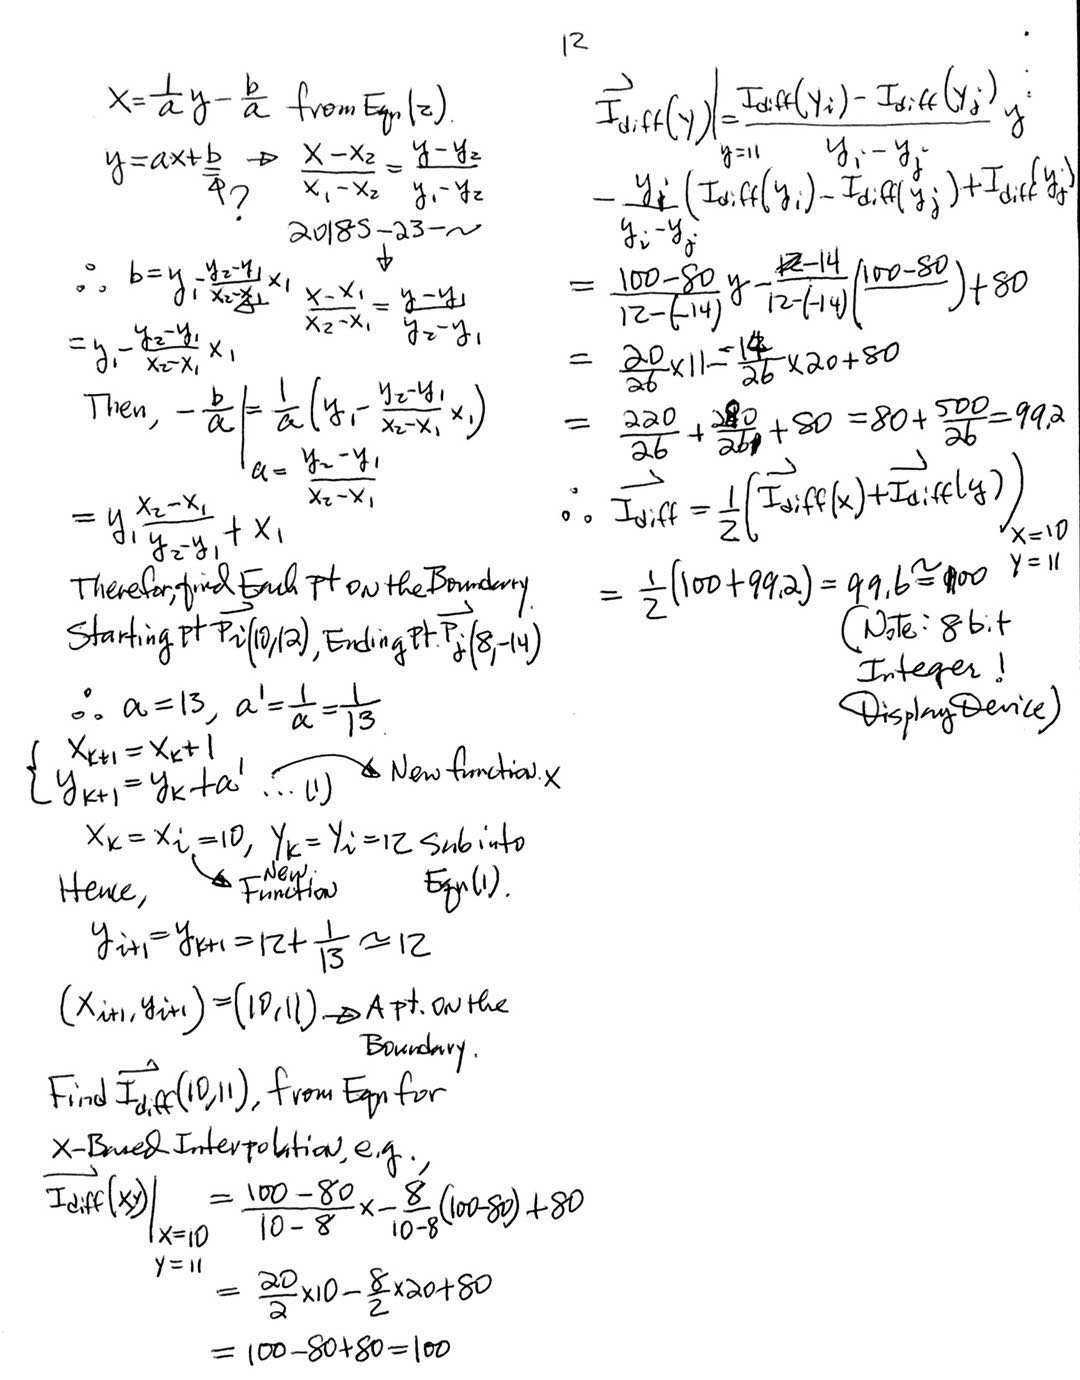 12
x = 1/a y - b/a from Eqn(2).
y = ax+b → (x-x₂)/(x₁-x₂) = (y-y₂)/(y₁-y₂)
?
2018S-23-~
∴ b = y₁ - (y₂-y₁)/(x₂-x₁) x₁ (x-x₁)/(x₂-x₁) = (y-y₁)/(y₂-y₁)
= y₁ - (y₂-y₁)/(x₂-x₁) x₁
Then, -b/a | = 1/a (y₁ - (y₂-y₁)/(x₂-x₁) x₁)
a = (y₂-y₁)/(x₂-x₁)
= y₁ (x₂-x₁)/(y₂-y₁) + x₁
Therefor, find Each pt on the Boundary.
Starting pt Pi(10,12), Ending pt. Pj(8,-14)
∴ a = 13, a' = 1/a = 1/13.
{ xₖ₊₁ = xₖ+1
yₖ₊₁ = yₖ+a' ...(1) → New function. x
xₖ = xi = 10, yₖ = yi = 12 sub into
Hence, → New Function Eqn(1).
yi+1 = yₖ₊₁ = 12 + 1/13 ≃ 12
(xi+1, yi+1) = (10,11) → A pt. on the
Boundary.
Find Idiff(10,11), from Eqn for
x-Based Interpolation, e.g.,
Idiff(x,y)| = (100-80)/(10-8) x - 8/(10-8) (100-80) + 80
x=10
y=11
= 20/2 ×10 - 8/2 ×20+80
= 100-80+80 = 100
Idiff(y)| = (Idiff(yi) - Idiff(yj))/(yi-yj) y
y=11
- yj/(yi-yj) (Idiff(yi) - Idiff(yj)) + Idiff(yj)
= (100-80)/(12-(-14)) y - -14/(12-(-14)) (100-80) + 80
= 20/26 ×11 - -14/26 ×20+80
= 220/26 + 280/26 + 80 = 80 + 500/26 = 99.2
∴ Idiff = 1/2 (Idiff(x) + Idiff(y))
x=10
y=11
= 1/2 (100+99.2) = 99.6 ≃ 100
(Note: 8 bit
Integer!
Display Device)